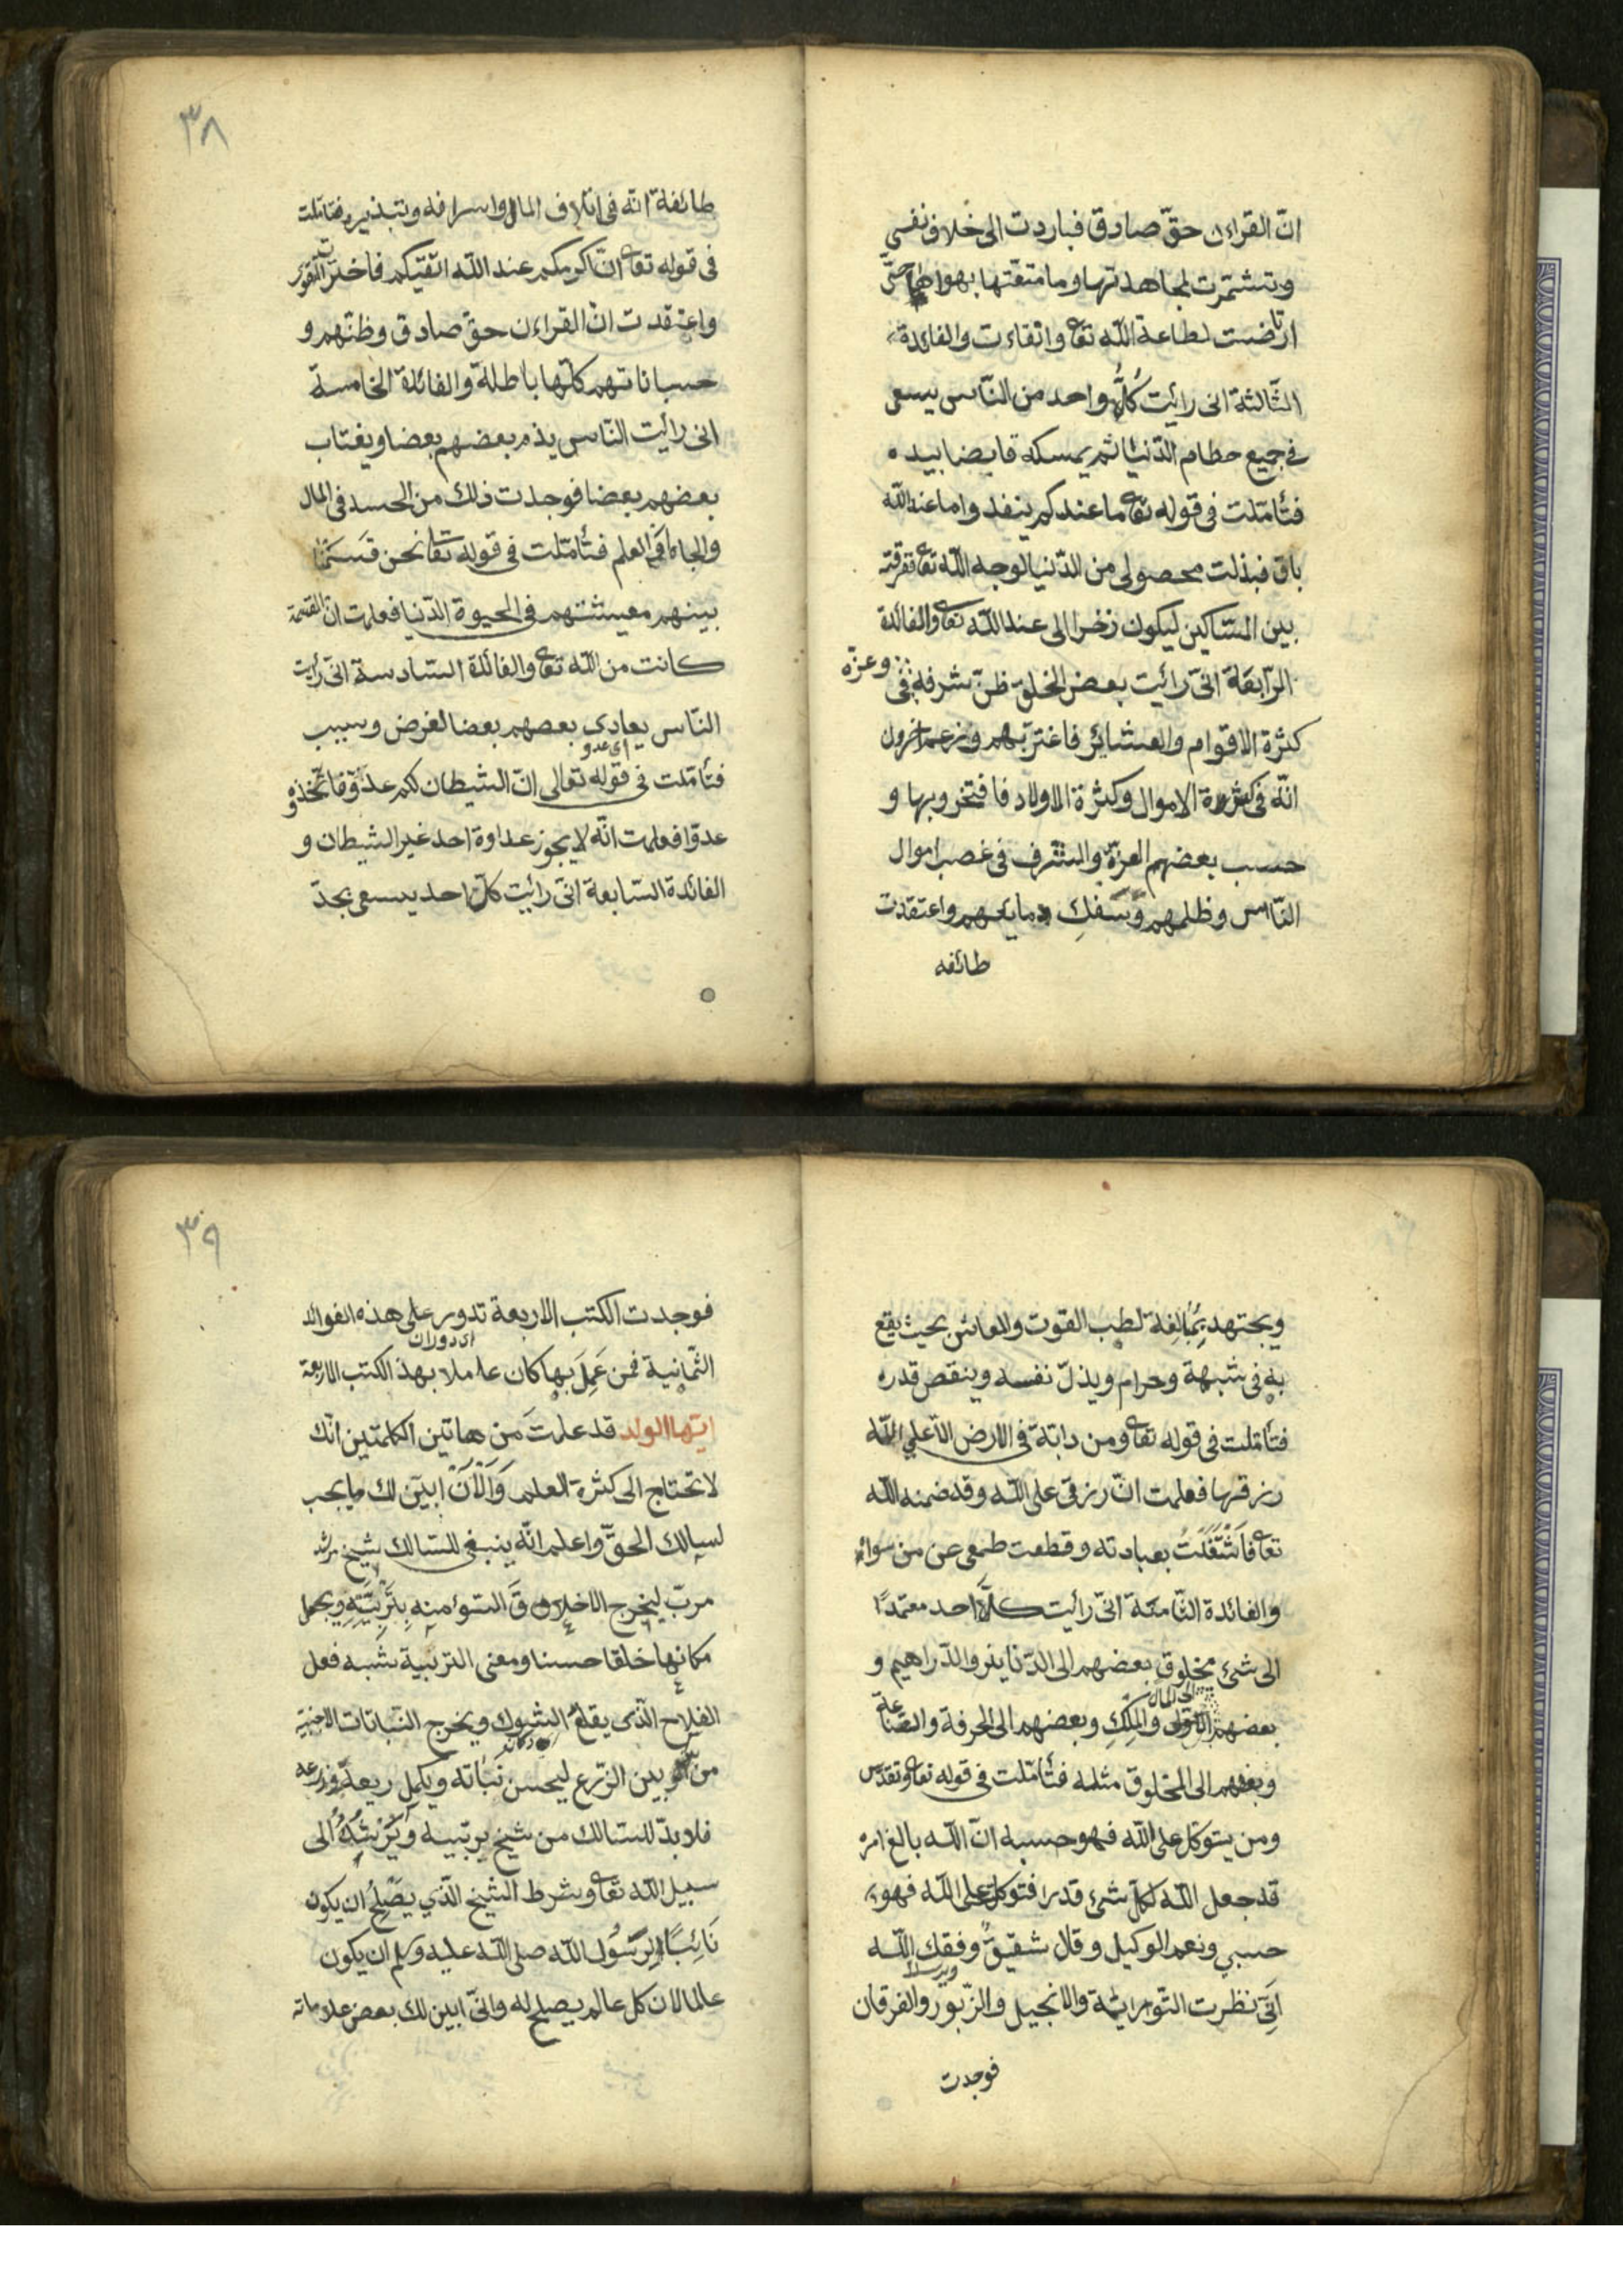 انّ القراءن حقّ صادق فبادرت الى خلاف نفسى
وتشمّرت لمجاهدتها وما متعّتها بهواها حتّى
ارتاضت لطاعة الله تعا وانقاءت والفائدة
الثّالثة انى رائيت كلّ واحد من النّاس يسعى
فى جميع حطام الدّنيا ثم يمسكه قابضا بيده
فتأمّلت فى قوله تعا ما عندكم ينفد وما عند الله
باق فبذلت محصولى من الدّنيا لوجه الله تعا ففرقته
بين المساكين ليكون ذخرا لى عند الله تعا والفائدة
الرّابعة انّى رائيت بعض الخلق ظنّ شرفه فى
وعزّه
كثرة الاقوام والعشائر فاغترّ بهم وزعم اخرون
انّه فى كثرة الاموال وكثرة الاولاد فافتخروا بها و
حسب بعضهم العزّة والشرف فى غصب اموال
النّاس وظلمهم وسفك دمايهم واعتقدت
طائفه
٣٨
طائفة انّه فى اتلاف المال واسرافه وتبذيره فتأمّلت
فى قوله تعا انّ اكرمكم عند الله اتقيكم فاخترت التّقوى
واعتقدت انّ القراءن حقّ صادق وظنّهم و
حسباناتهم كلّها باطلة والفائدة الخامسة
انى رائيت النّاس يذم بعضهم بعضا ويغتاب
بعضهم بعضا فوجدت ذلك من الحسد فى المال
والجاه والعلم فتأمّلت فى قوله تعا نحن قسمنا
بينهم معيشتهم فى الحيوة الدّنيا فعلمت انّ القسمة
كانت من الله تعا والفائدة السّادسة انّى رأيت
النّاس يعادى بعضهم بعضا لغرض وسبب
اى عدو
فتأمّلت فى قوله تعالى انّ الشّيطان لكم عدوّ فاتّخذوه
عدوّا فعلمت انّه لا يجوز عداوة احد غير الشّيطان و
الفائدة السّابعة انّى رائيت كلّ احد يسعى بجدّ
ويجتهد بمبالغة لطلب القوت والمعاش بحيث يقع
به فى شبهة وحرام ويذلّ نفسه وينقص قدره
فتأمّلت فى قوله تعا وما من دابّة فى الارض الّا على الله
رزقها فعلمت انّ رزقى على الله وقد ضمنه الله
تعا فاشتغلت بعبادته وقطعت طمعى عن من سواه
والفائدة الثّامنة انّى رأيت كلّ احد معتمدا
الى شئ مخلوق بعضهم الى الدّنانير والدّراهيم و
الى المال
بعضهم والملك وبعضهم الى الحرفة والصّناعة
وبعضهم الى المخلوق مثله فتأمّلت فى قوله تعا وتقدّس
ومن يتوكّل على الله فهو حسبه انّ الله بالغ امره
قد جعل الله لكلّ شئ قدرا فتوكّلت على الله فهو
حسبي ونعم الوكيل وقال شقيق وفقك الله
انّى نظرت التّوراية والانجيل والزّبور والفرقان
فوجدت
٣٩
فوجدت الكتب الاربعة تدور على هذه الفوائد
اى دوران
الثّمانية فمن عمل بها كان عاملا بهذ الكتب الاربعة
ايّها الولد قد علمت من هاتين الكلمتين انّك
لا تحتاج الى كثرة العلم والان ابيّن لك ما يجب
لسالك الحقّ واعلم انّه ينبغى للسّالك شيخ مرشد
مربّ ليخرج الاخلاق السّوء منه بتربيته ويجعل
مكانها خلقا حسنا ومعنى التربية يشبه فعل
الفلاح الّذى يقلع الشوك ويخرج النّباتات الاجنبية
من بين الزّرع ليحسن نباته ويكمل ريعه
فلا بدّ للسّالك من شيخ يربّيه ويرشده الى
سبيل الله تعا وشرط الشّيخ الّذي يصلح ان يكون
نائبا لرسول الله صلى الله عليه وسلم ان يكون
عالما لان كل عالم يصلح له وانّى ابين لك بعض علاماته